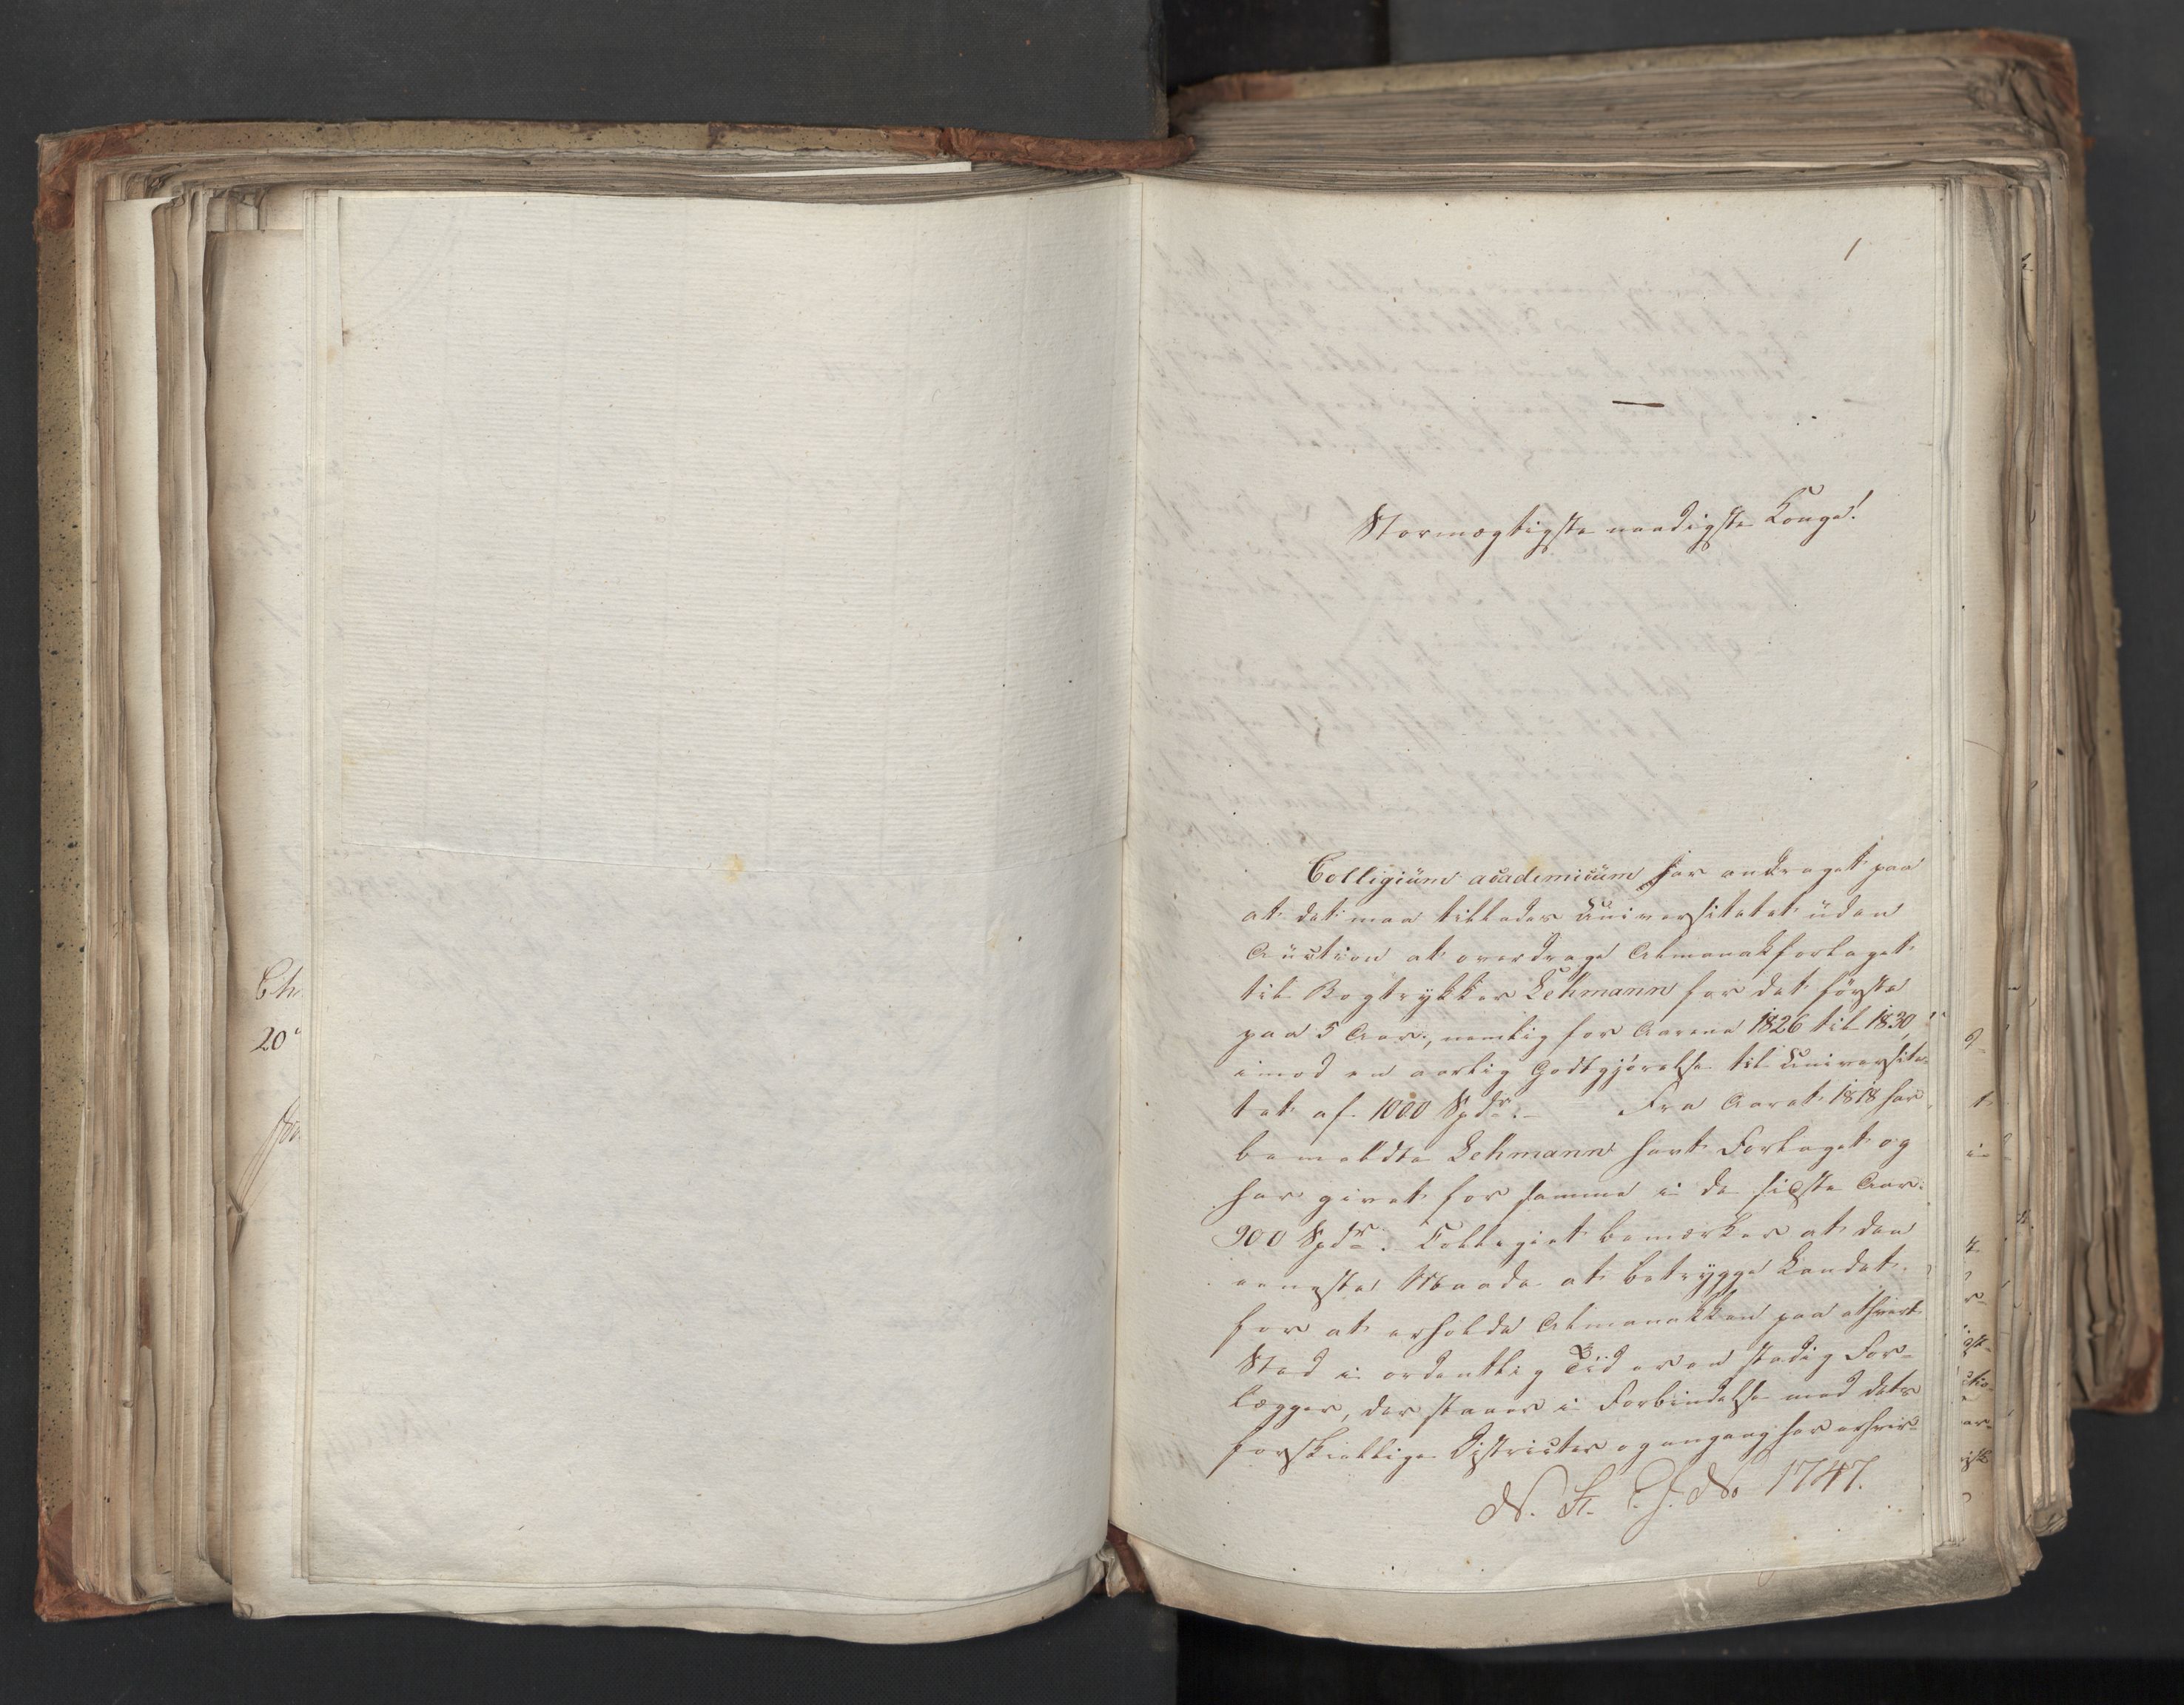 1
Stormægtigste naadigste Konge!
Collegium academicum har andraget paa
at det maa tillades Universitetet uden
Auction at overdrage Almanakforlaget
til Bogtrykker Lehmann for det første
paa 5 Aar, nemlig for Aarene 1826 til 1830,
imod en aarlig Godtgjørelse til Universite-
tet af 1000 Spdr. – Fra Aaret 1818 har
bemeldte Lehmann havt Forlaget og
har givet for samme i de sidste Aar
900 Spdr. Collegiet bemærker at den
eeneste Maade at betrygge Landet
for at erholde Almanakken paa ethvert
Sted i ordentlig Tid er en stadig For-
lægger, der staaer i Forbindelse med dets
forskiellige Districter og engang har erhver-
N. St. E. J. No 1747.
Ch
20